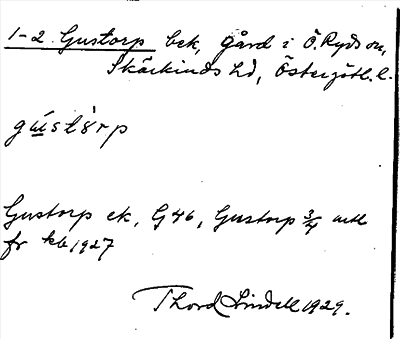 1-2 Gustorp bek, gård i Ö. Ryds sn,
Skärkinds hd, Östergötl. l.
gústòrp
Gustorp ek, G46, Gustorp 3/4 mtl
fr kb 1927
Thord Lindell 1929.